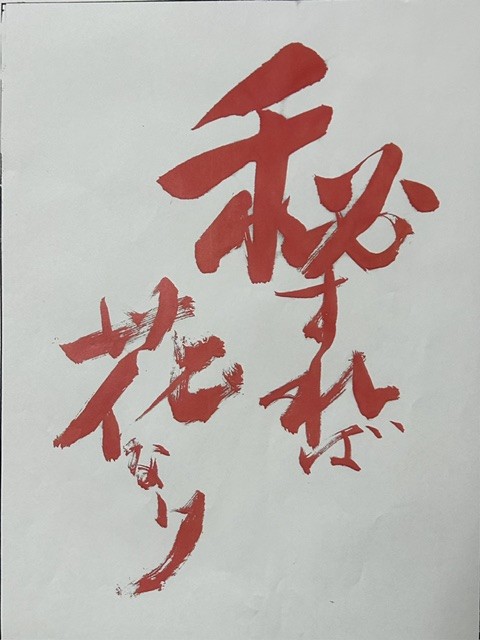 秘すれば
花なり